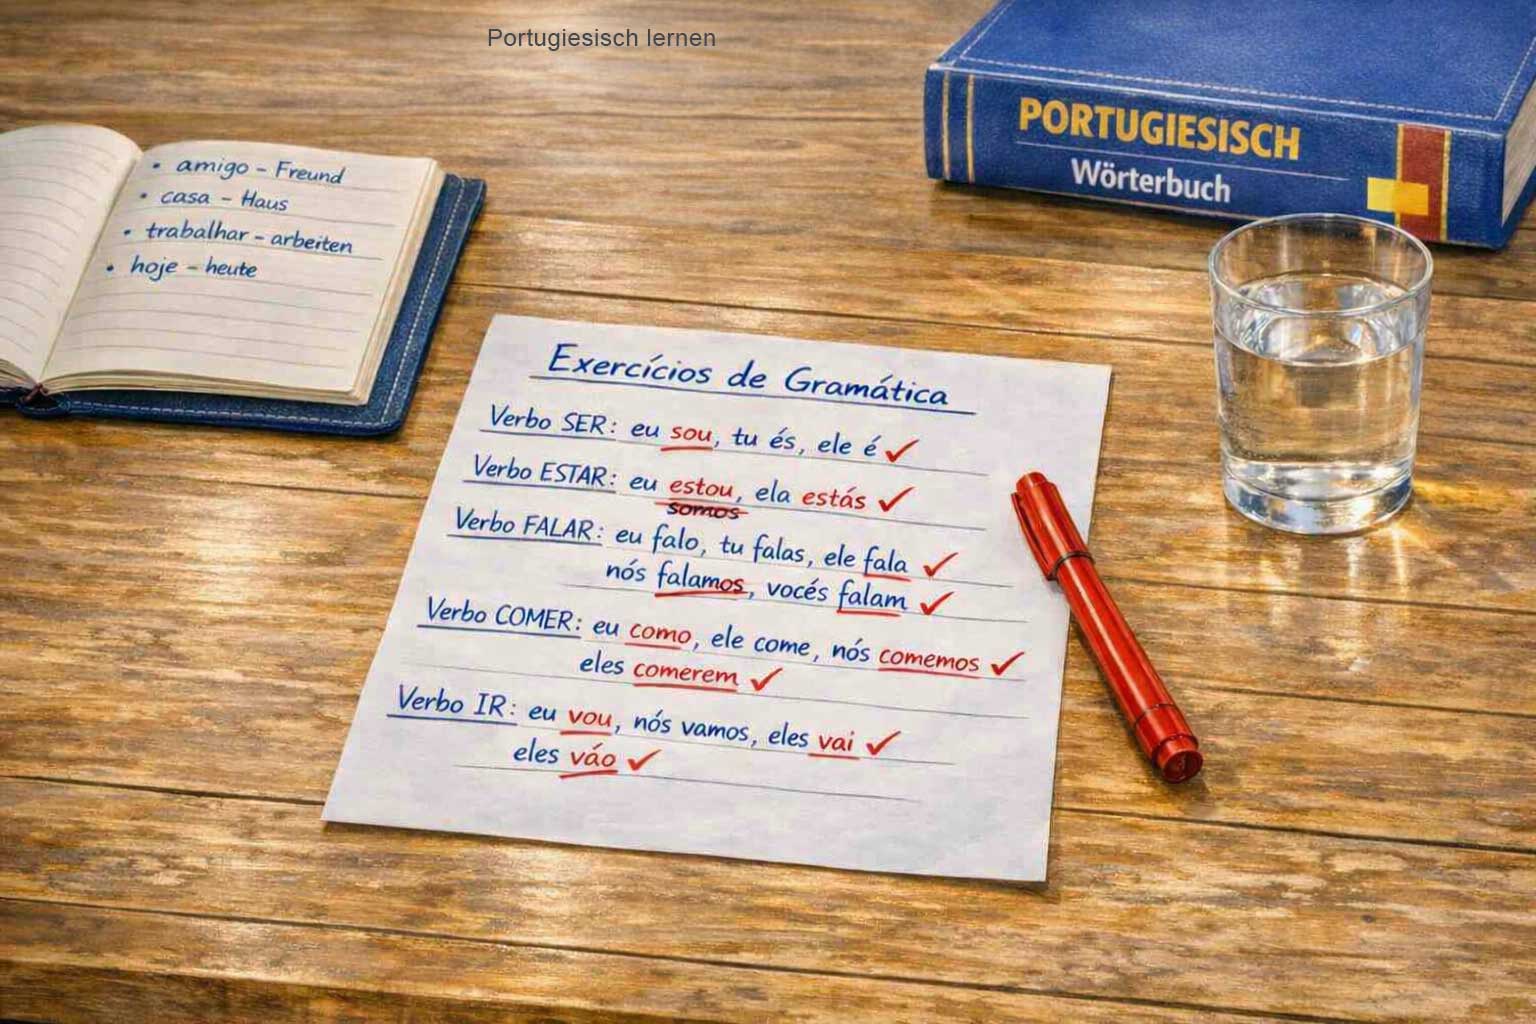 Portugiesisch lernen
PORTUGIESISCH
Wörterbuch
• amigo – Freund
• casa – Haus
• trabalhar – arbeiten
• hoje – heute
Exercícios de Gramática
Verbo SER: eu sou, tu és, ele é ✓
Verbo ESTAR: eu estou, ela estás ✓
somos
Verbo FALAR: eu falo, tu falas, ele fala ✓
nós falamos, vocés falam ✓
Verbo COMER: eu como, ele come, nós comemos ✓
eles comerem ✓
Verbo IR: eu vou, nós vamos, eles vai ✓
eles váo ✓